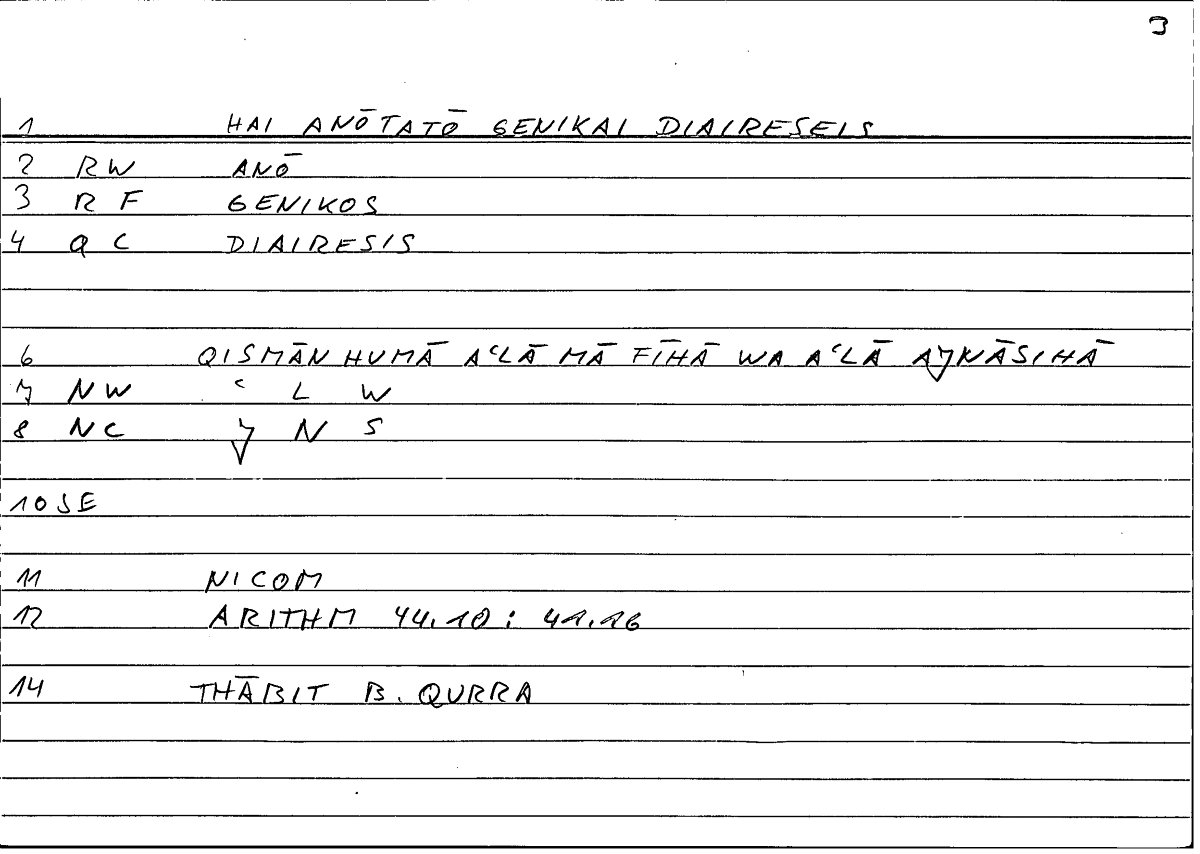 3
1 HAI ANŌTATŌ GENIKAI DIAIRESEIS
2 RW ANŌ
3 RF GENIKOS
4 QC DIAIRESIS
6 QISMĀN HUMĀ AʿLĀ MĀ FĪHĀ WA AʿLĀ AǦNĀSIHĀ
7 NW ʿ L W
8 NC Ǧ N S
10 SE
11 NICOM
12 ARITHM 44.10 : 41.16
14 THĀBIT B. QURRA